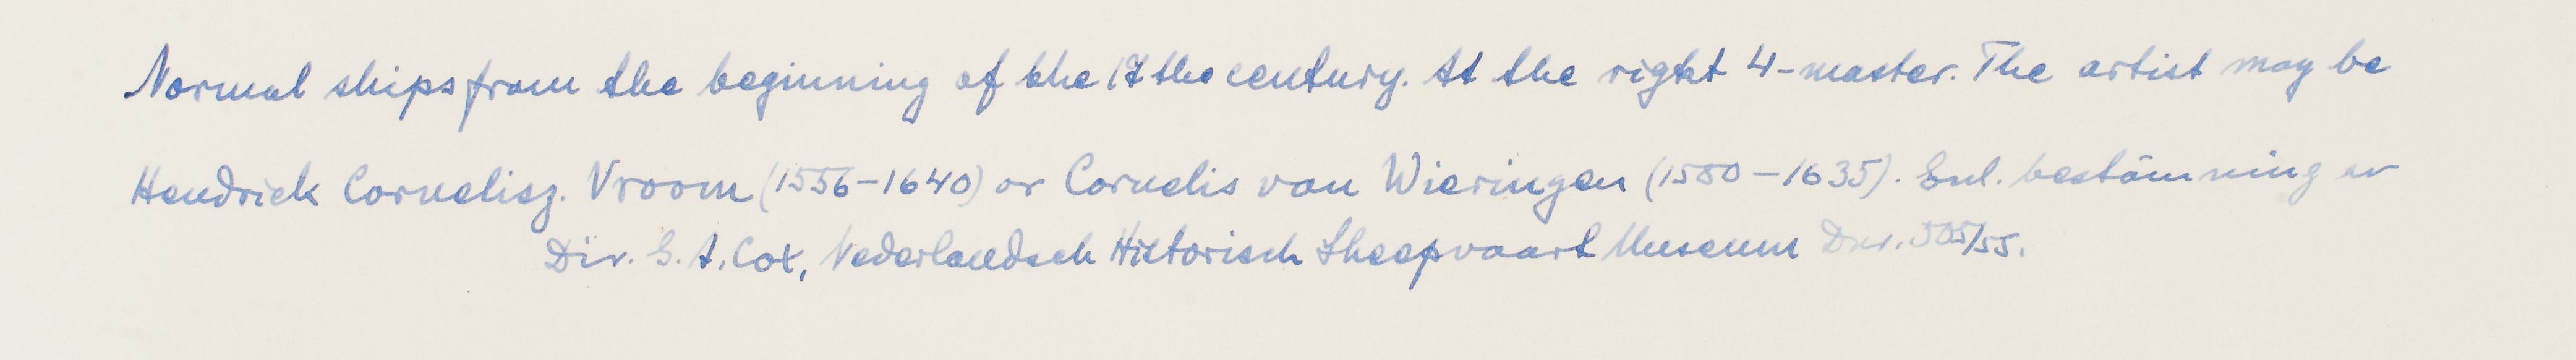 Normal ships from the beginning of the 17 the century. At the right 4-master. The artist may be
Hendrick Cornelisz. Vroom (1556-1640) or Cornelis van Wieringen (1580-1635). Enl. bestämning av
Dir. G. A. Cox, Nederlandsch Historisch Sheepvaart Museum Dnr. 505/55.